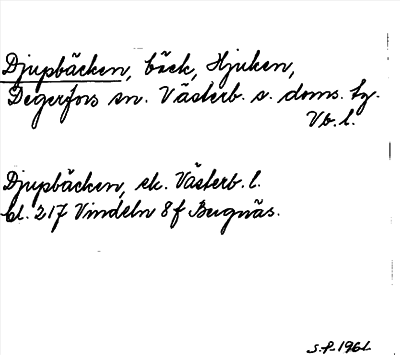 Djupbäcken, bäck, Hjuken,
Degerfors sn. Västerb. s. doms. tg.
Vb. l.
Djupbäcken, ek. Västerb. l.
bl. 217 Vindeln 8f Bergnäs.
S.P. 1961